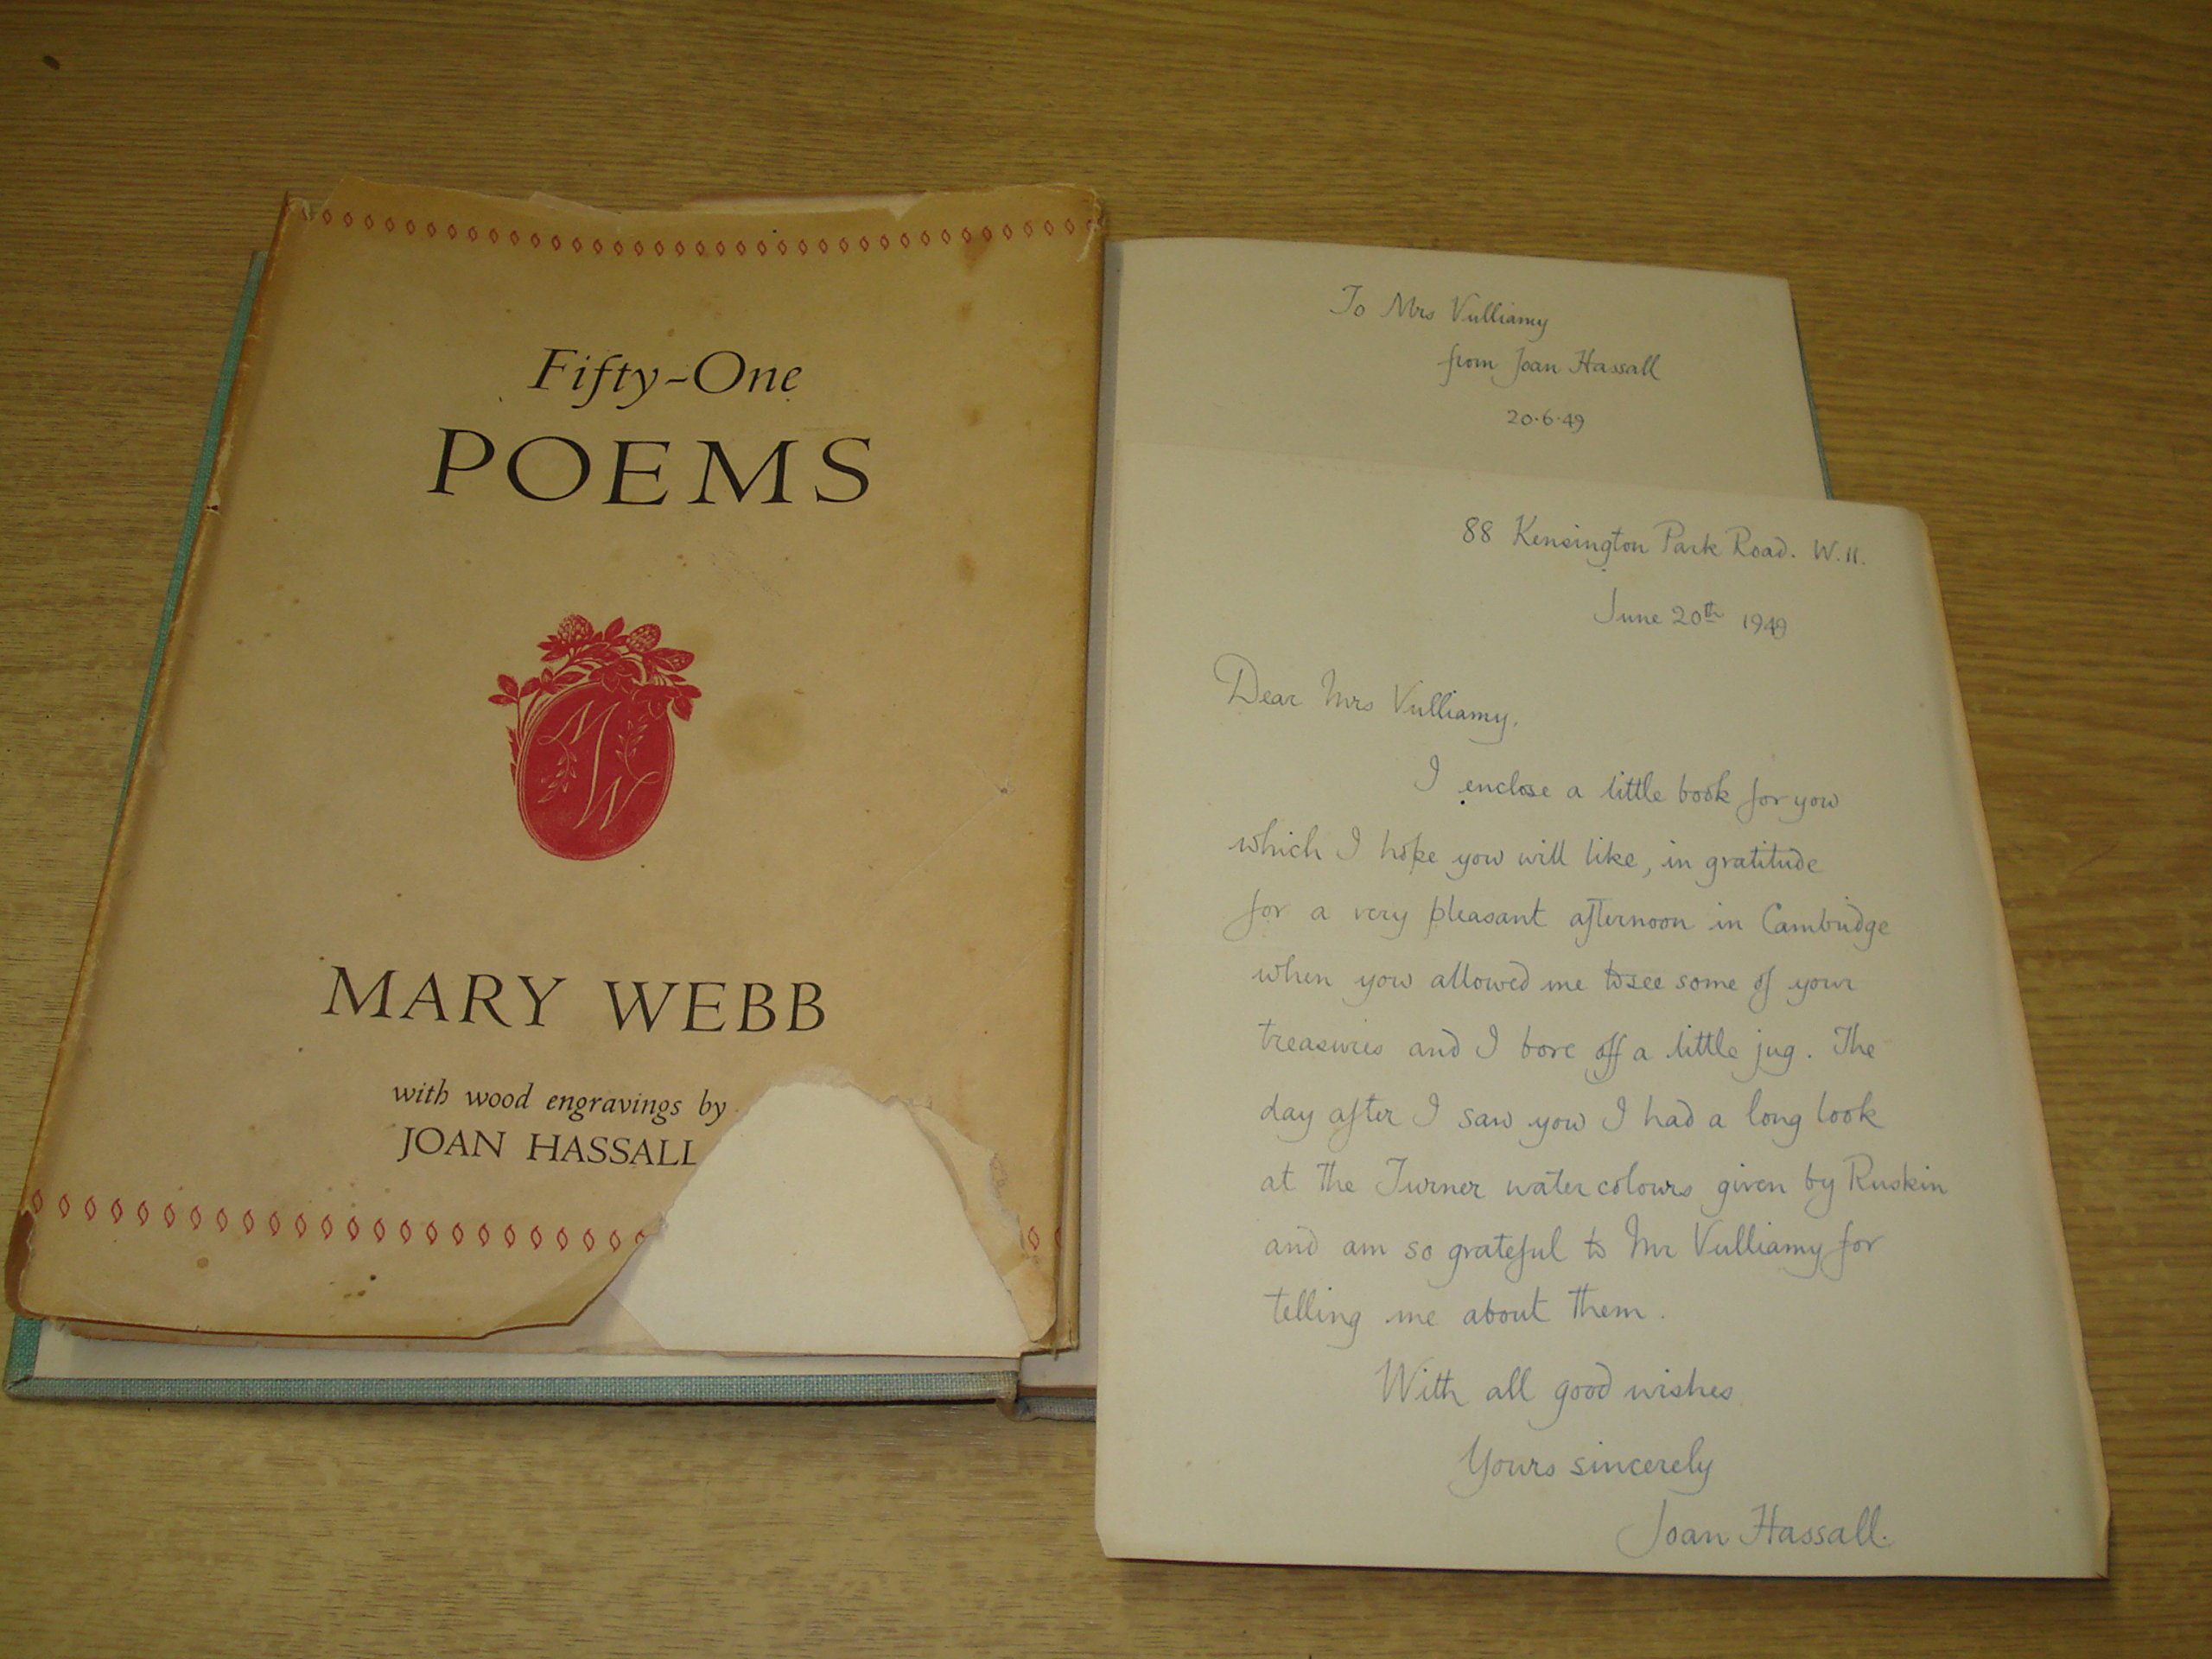 Fifty-One
POEMS
MW
MARY WEBB
with wood engravings by
JOAN HASSALL
To Mrs Vulliamy
from Joan Hassall
20·6·49
88 Kensington Park Road. W.11.
June 20th 1949
Dear Mrs Vulliamy,
I enclose a little book for you
which I hope you will like, in gratitude
for a very pleasant afternoon in Cambridge
when you allowed me to see some of your
treasures and I bore off a little jug. The
day after I saw you I had a long look
at the Turner water colours given by Ruskin
and am so grateful to Mr Vulliamy for
telling me about them.
With all good wishes
Yours sincerely
Joan Hassall.